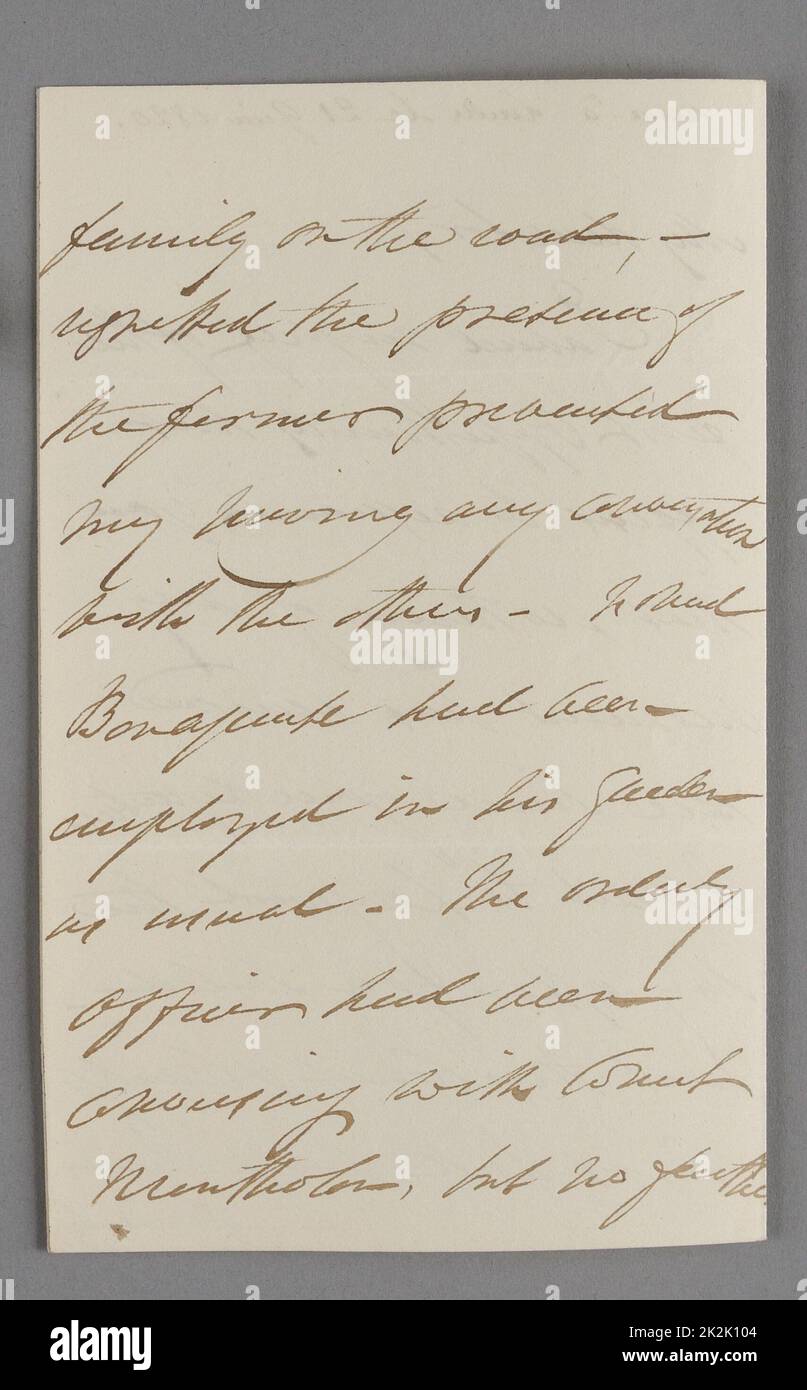 family on the road, -
regretted the presence of
the former prevented
my having any conversation
with the others -
Bonaparte had been
employed in his garden
as usual - The orderly
officer had been
conversing with Count
Montholon, but no further
alamy
Image ID: 2K2K104
www.alamy.com